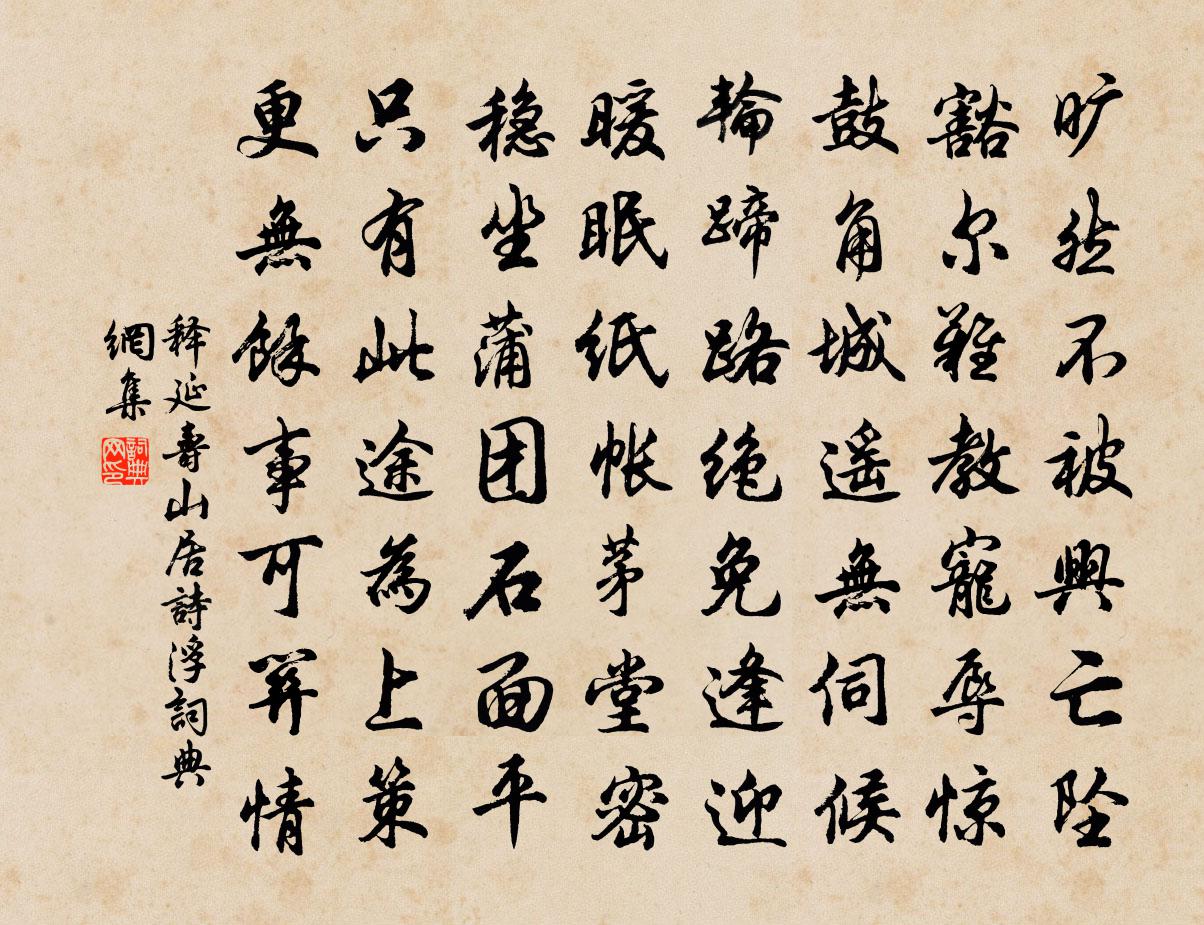 旷然不被興亡坠
豁尔難教寵辱惊
鼓角城遥無伺候
輪蹄路绝免逢迎
暖眠紙帐茅堂密
稳坐蒲团石面平
只有此途為上策
更無餘事可關情
释延壽山居詩浮詞典
網集
詞典
网印